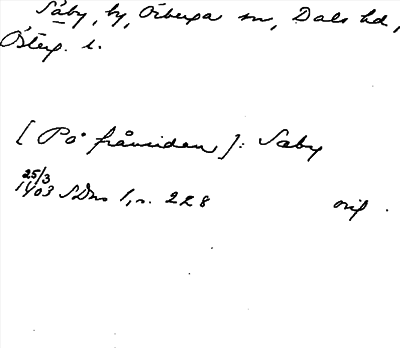 Säby, by, Örberga sn, Dals hd,
Österg. l.
[På frånsidan]: Saby
25/3
1403 SDns 1, s. 228 orig.